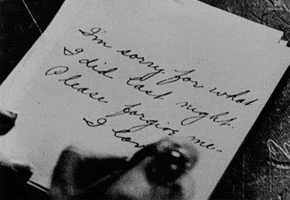 I'm sorry for what
I did last night.
Please forgive me.
I lov